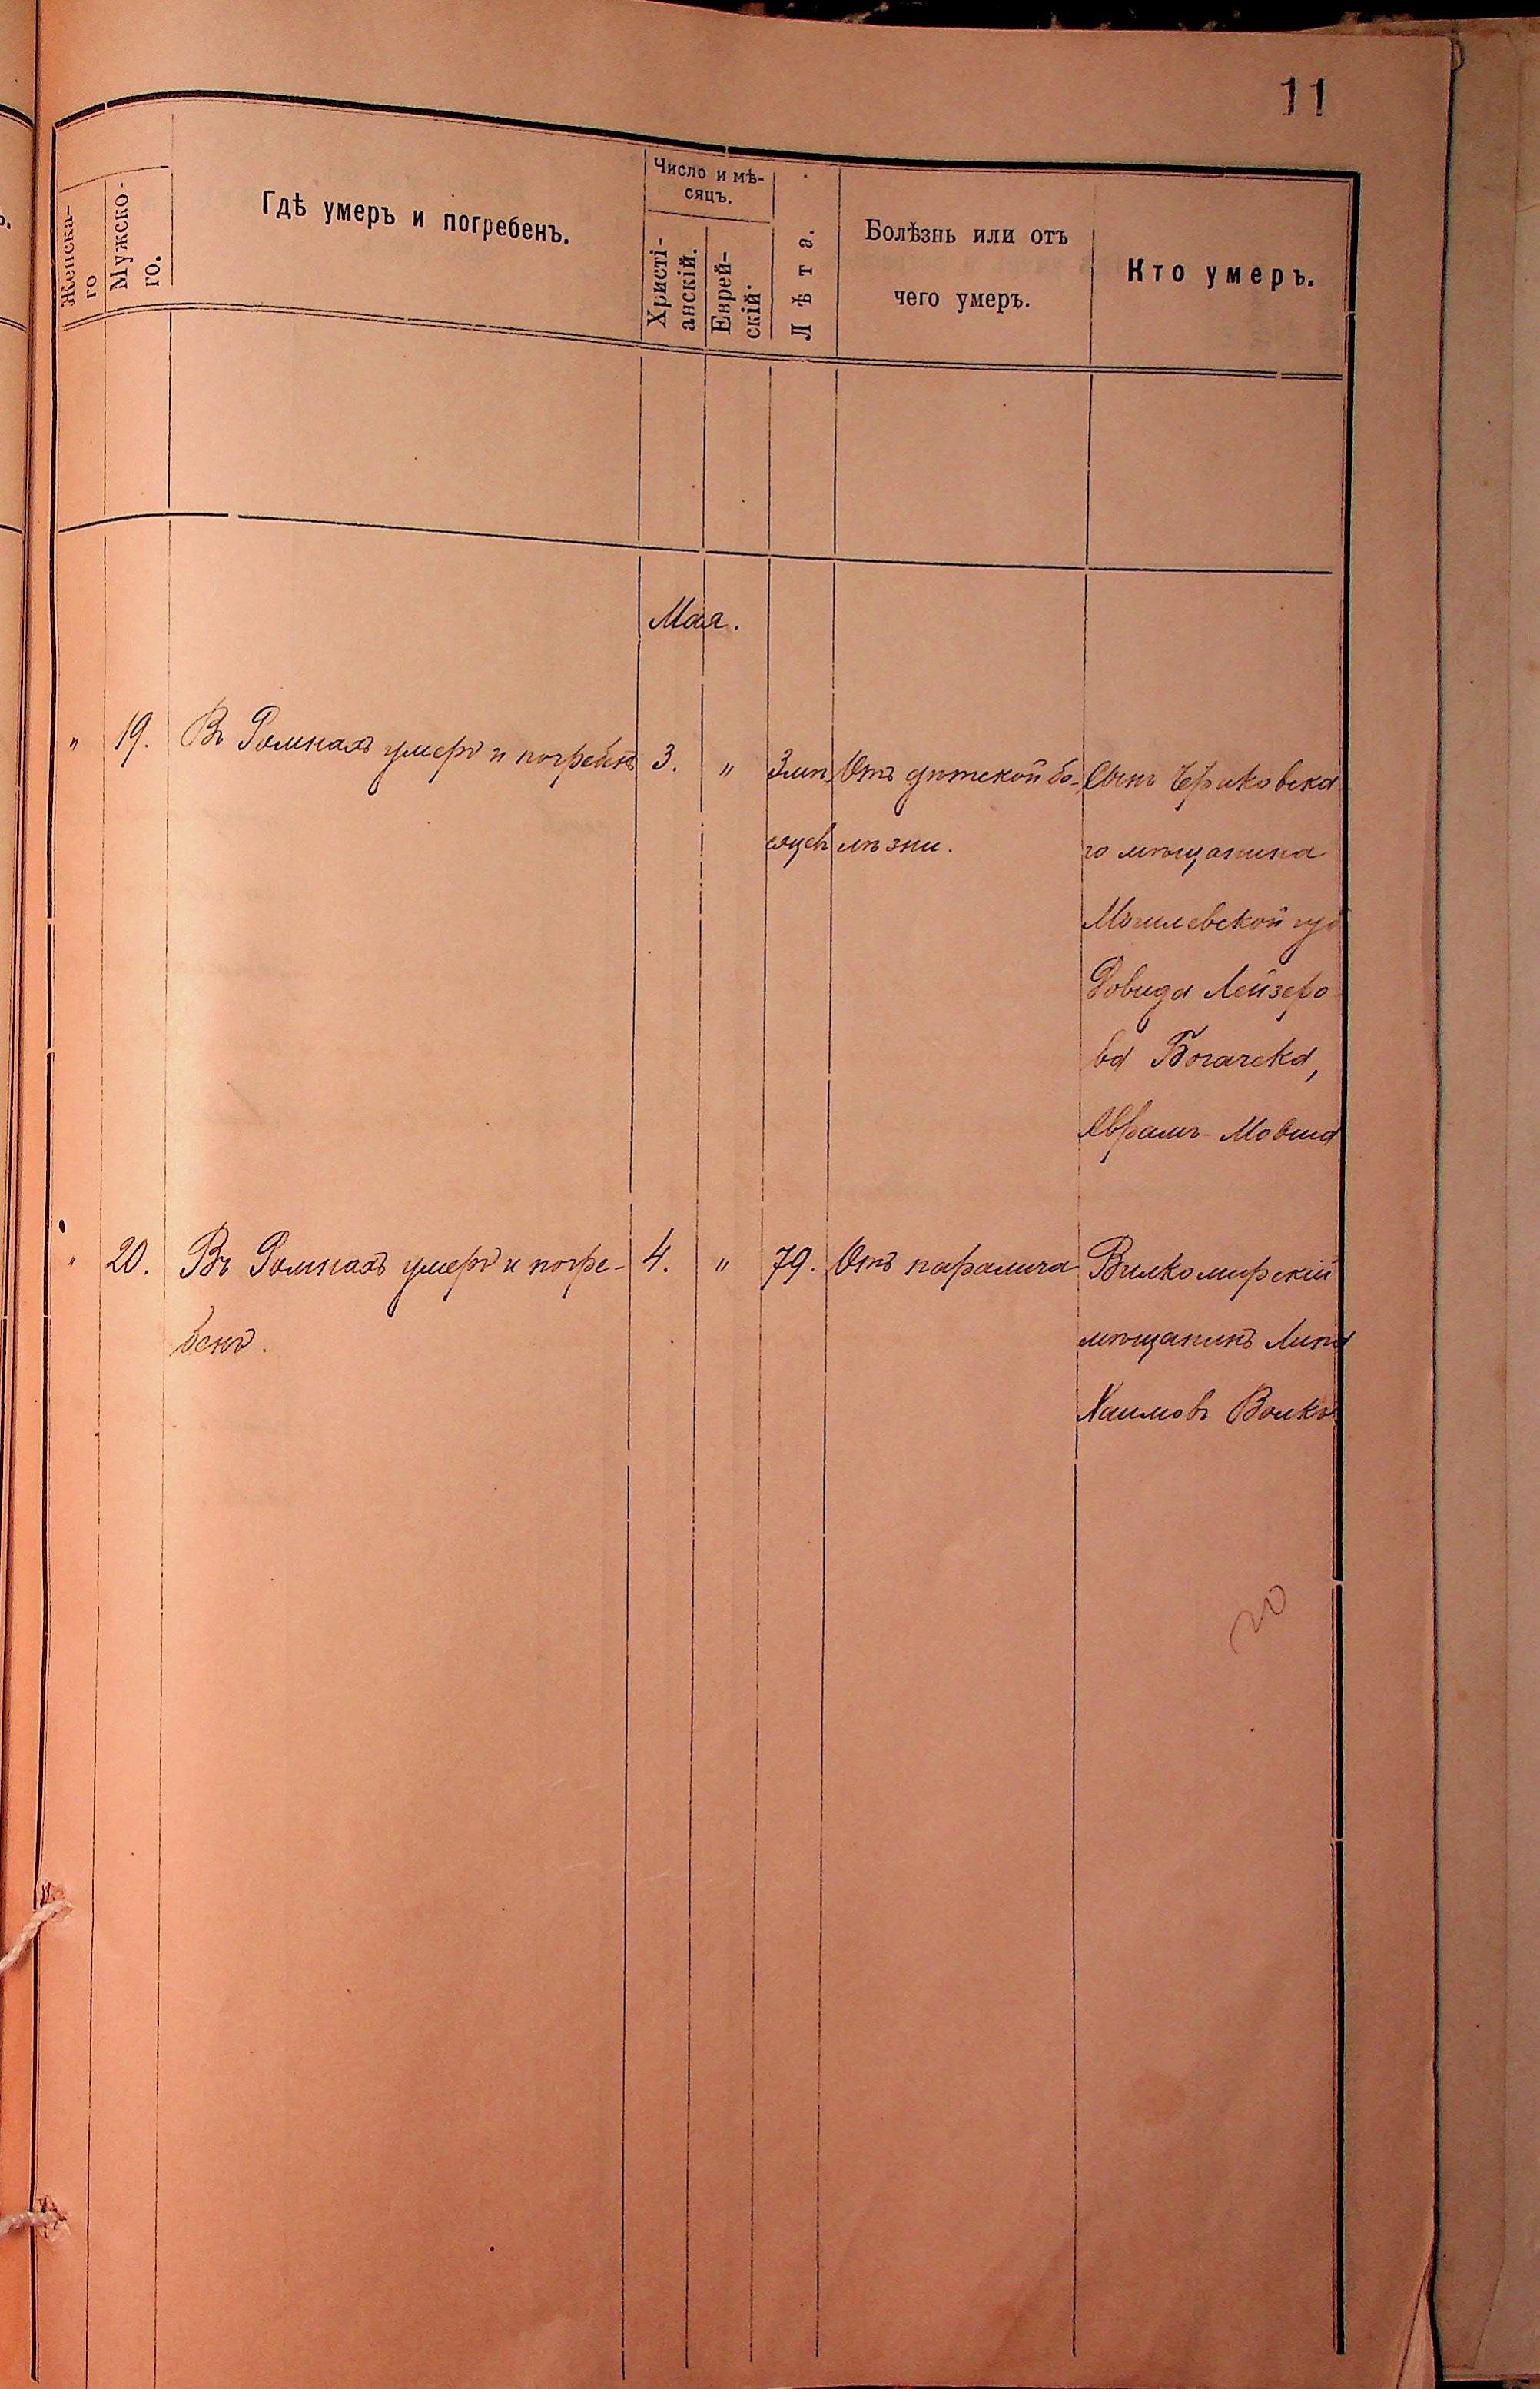 11
Женска-
го
Мужско-
го.
Гдѣ умеръ и погребенъ.
Число и мѣ-
сяцъ.
Христі-
анскій.
Еврей-
скій.
Лѣта.
Болѣзнь или отъ
чего умеръ.
Кто умеръ.
Мая.
" 19. Въ Ромнахъ умеръ и погребенъ 3. " 3 Отъ дѣтской бо- Сынъ Чериковска
лѣзни. го мѣщанина
Могилевской губ
Довида Лейзеро-
ва Богачека,
Абрамъ-Мовша
" 20. Въ Ромнахъ умеръ и погре- 4. " 79. Отъ паралича Вилкомирскій
бенъ. мѣщанинъ Липа
Хаимовъ
20